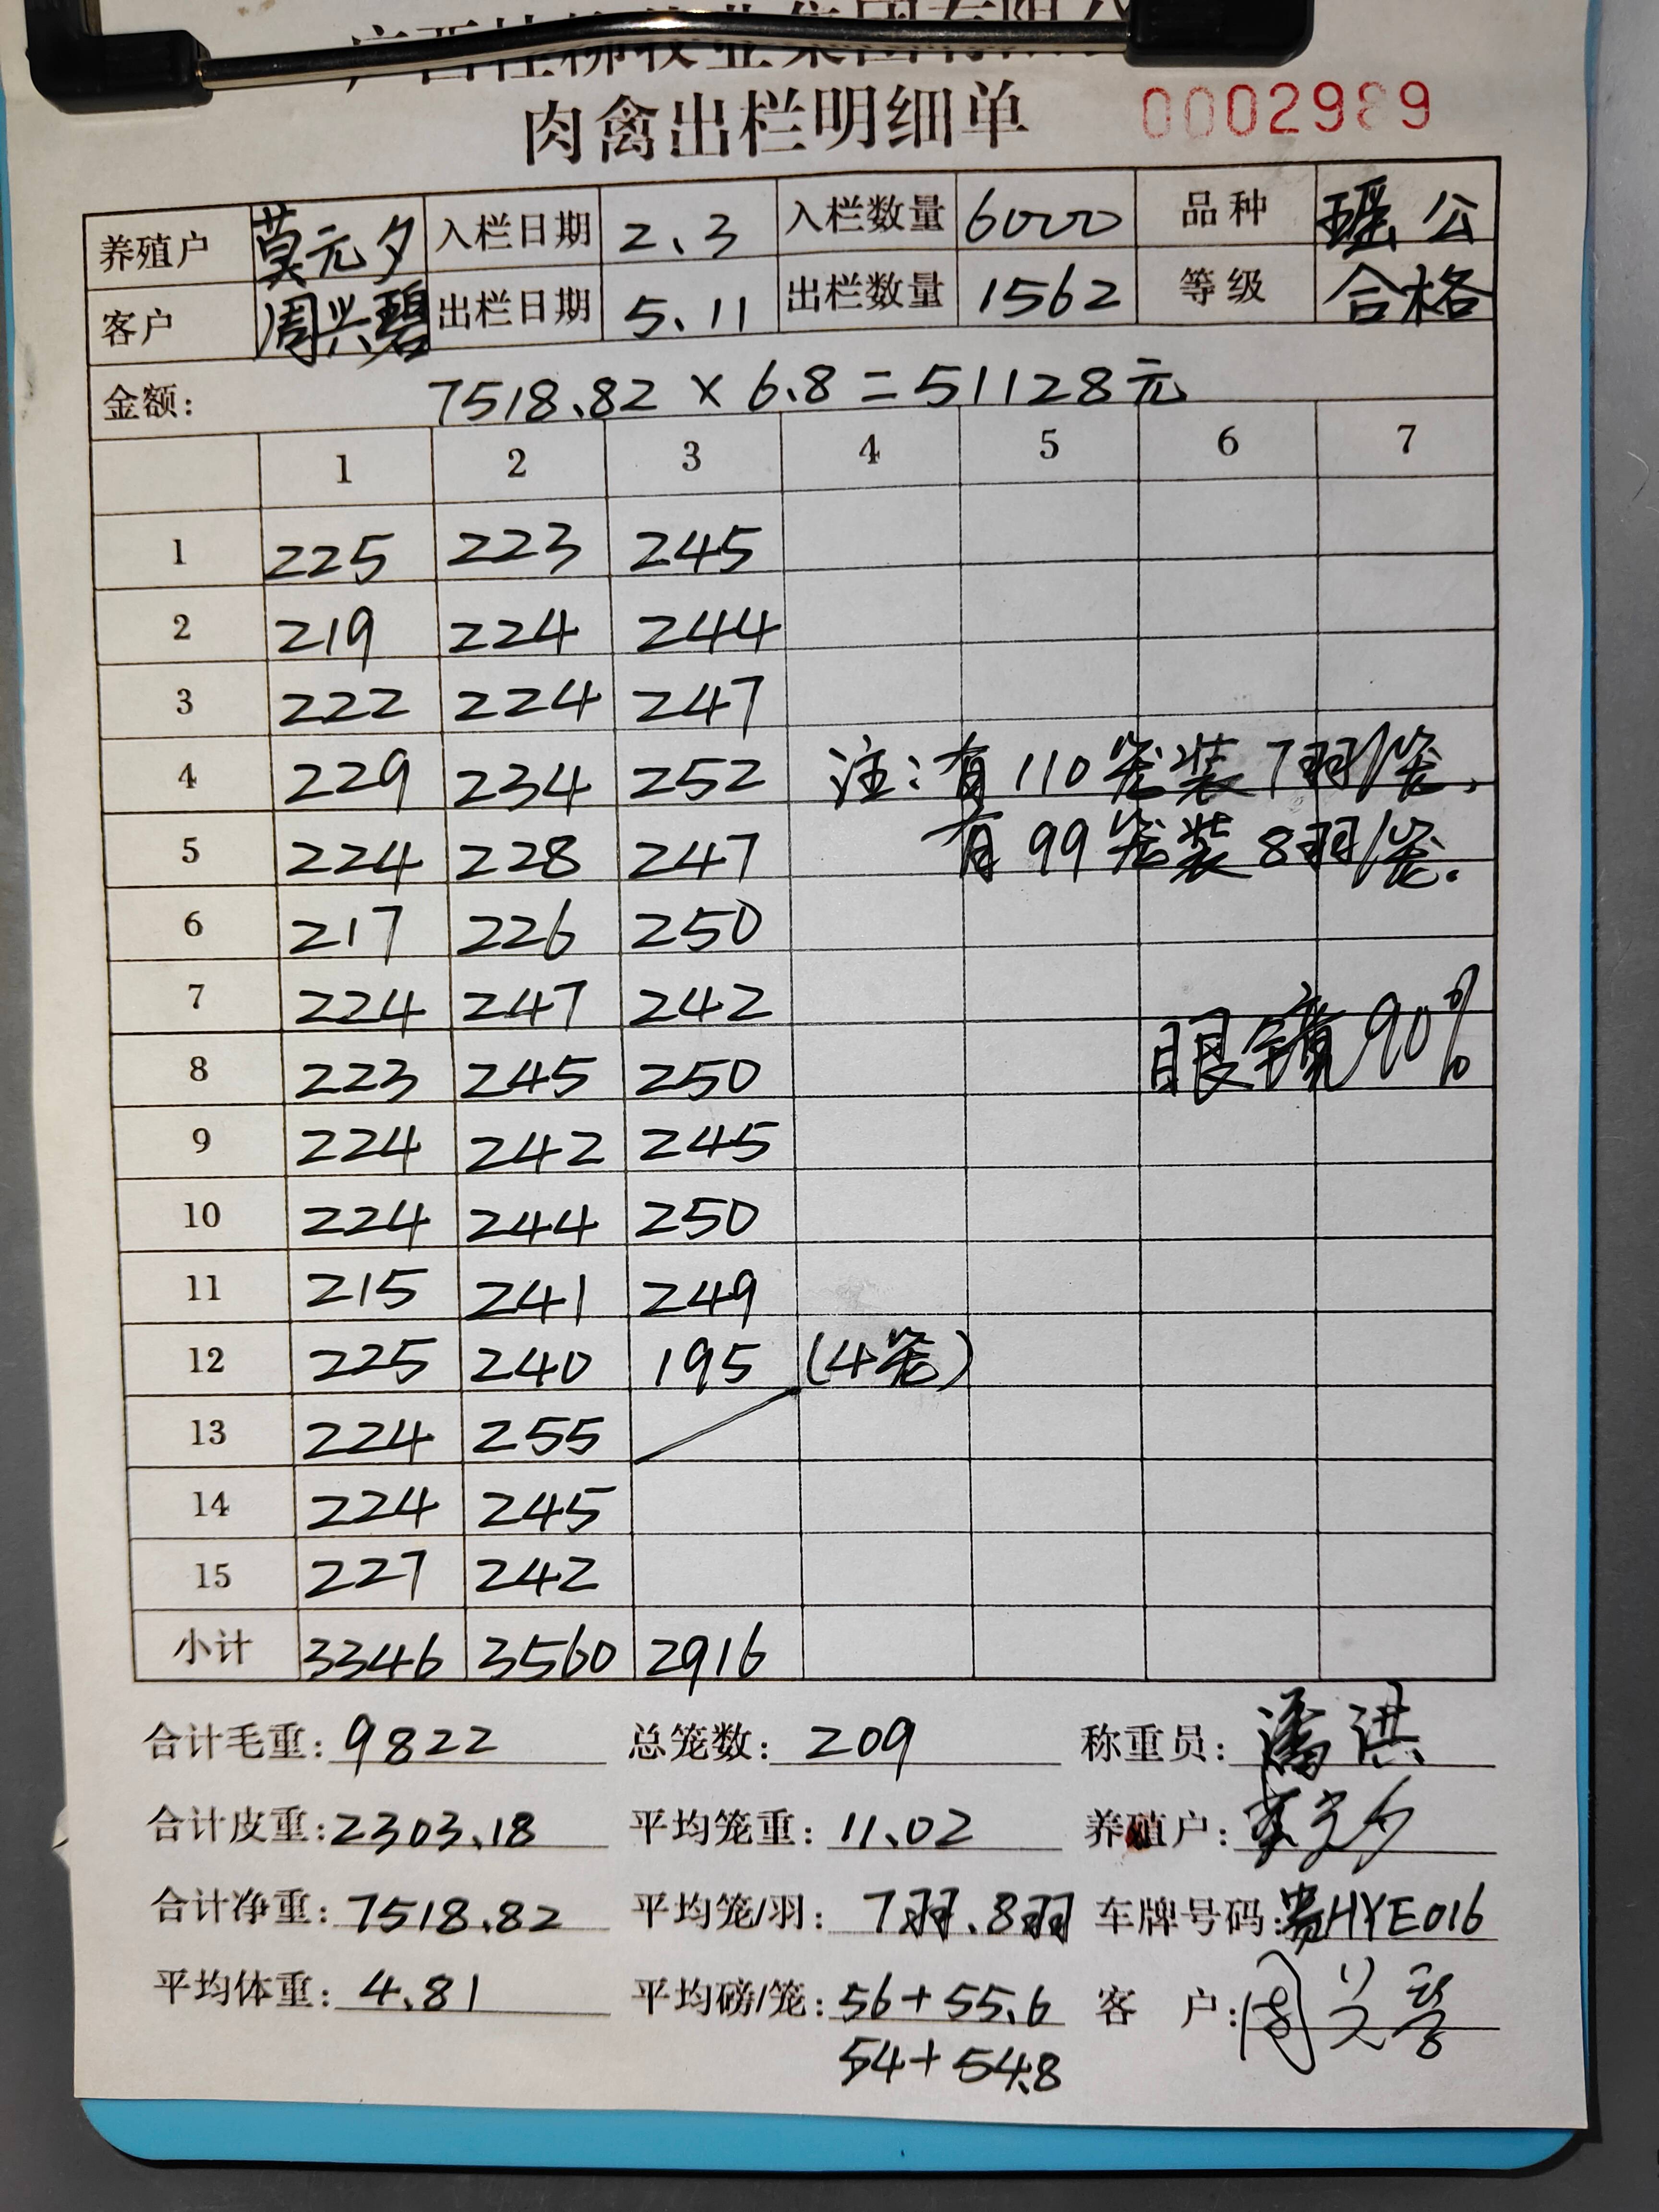 广西桂柳牧业集团有限公
肉禽出栏明细单 0002989
养殖户 莫元夕 入栏日期 2.3 入栏数量 6000 品种 瑶公
客户 周兴碧 出栏日期 5.11 出栏数量 1562 等级 合格
金额: 7518.82 × 6.8 = 51128元
1 2 3 4 5 6 7
1 225 223 245
2 219 224 244
3 222 224 247
4 229 234 252 注:有110笼装7羽/笼,
5 224 228 247 有99笼装8羽/笼.
6 217 226 250
7 224 247 242
8 223 245 250 眼镜90%
9 224 242 245
10 224 244 250
11 215 241 249
12 225 240 195 (4笼)
13 224 255
14 224 245
15 227 242
小计 3346 3560 2916
合计毛重: 9822 总笼数: 209 称重员: 潘洪
合计皮重: 2303.18 平均笼重: 11.02 养殖户: 莫元夕
合计净重: 7518.82 平均笼/羽: 7羽.8羽 车牌号码: 贵HYE016
平均体重: 4.81 平均磅/笼: 56+55.6 客 户: 周兴碧
54+54.8